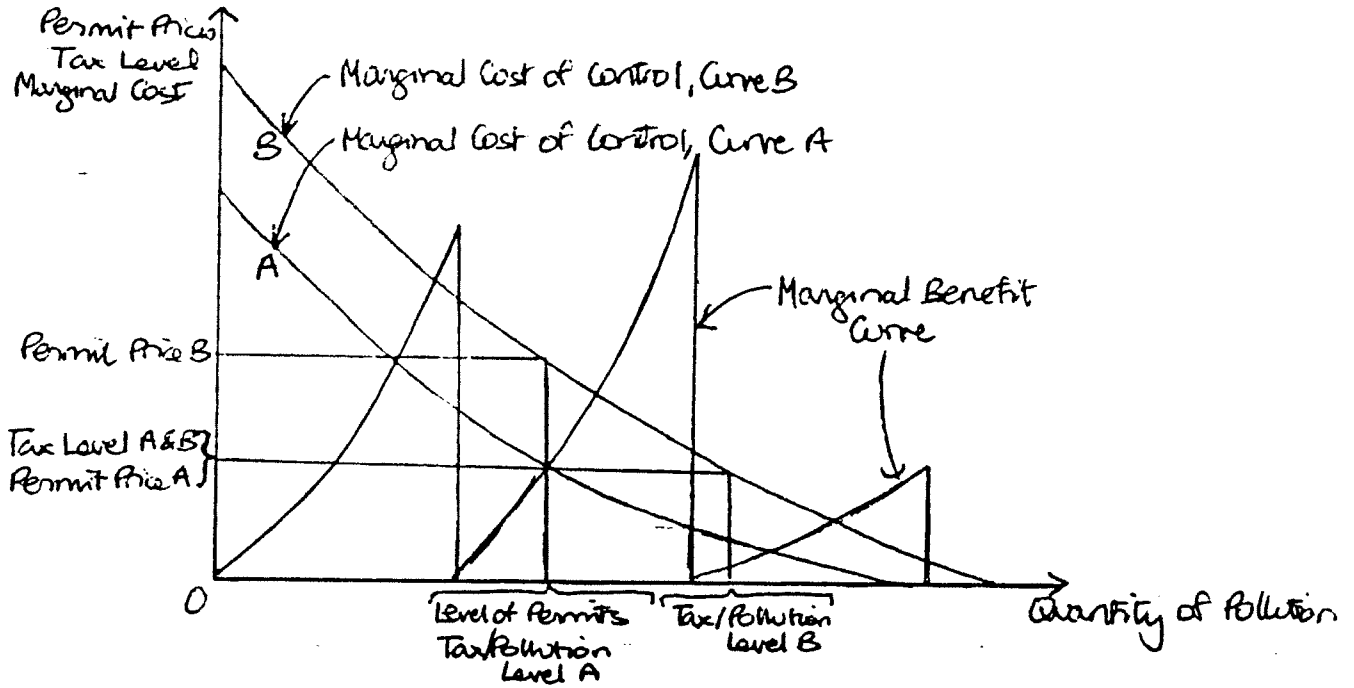 Permit Prices
Tax Level
Marginal Cost
Marginal Cost of Control, Curve B
Marginal Cost of Control, Curve A
B
A
Marginal Benefit
Curve
Permit Price B
Tax Level A&B
Permit Price A
O
Level of Permits
Tax/Pollution
Level A
Tax/Pollution
Level B
Quantity of Pollution